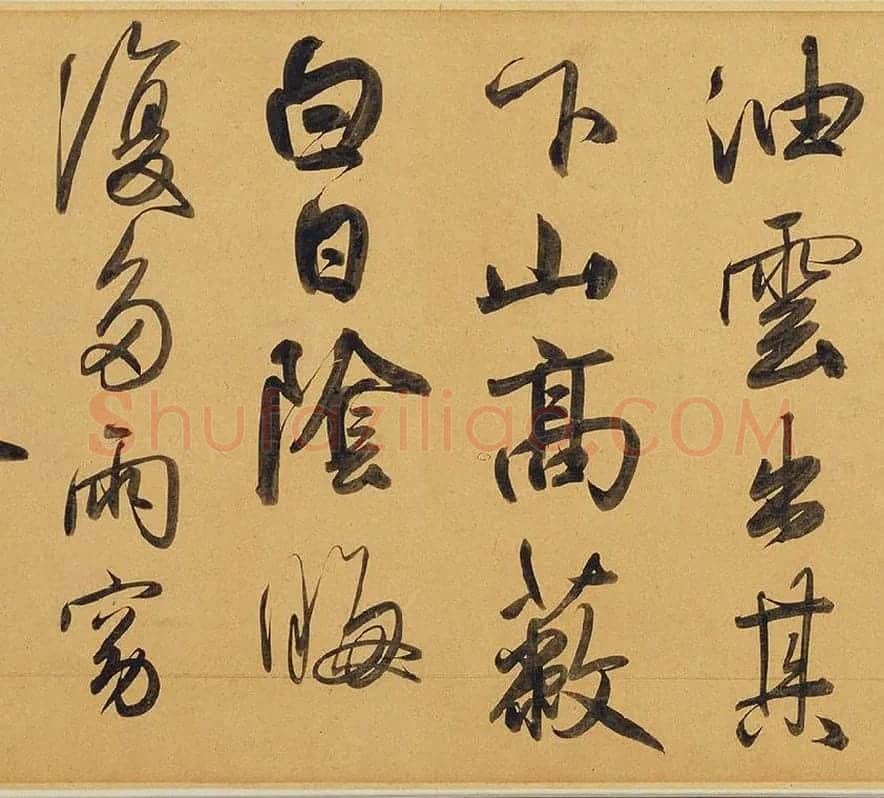 油雲出其
下山高蔽
白日陰晦
復多雨窈
Shufaziliao.COM